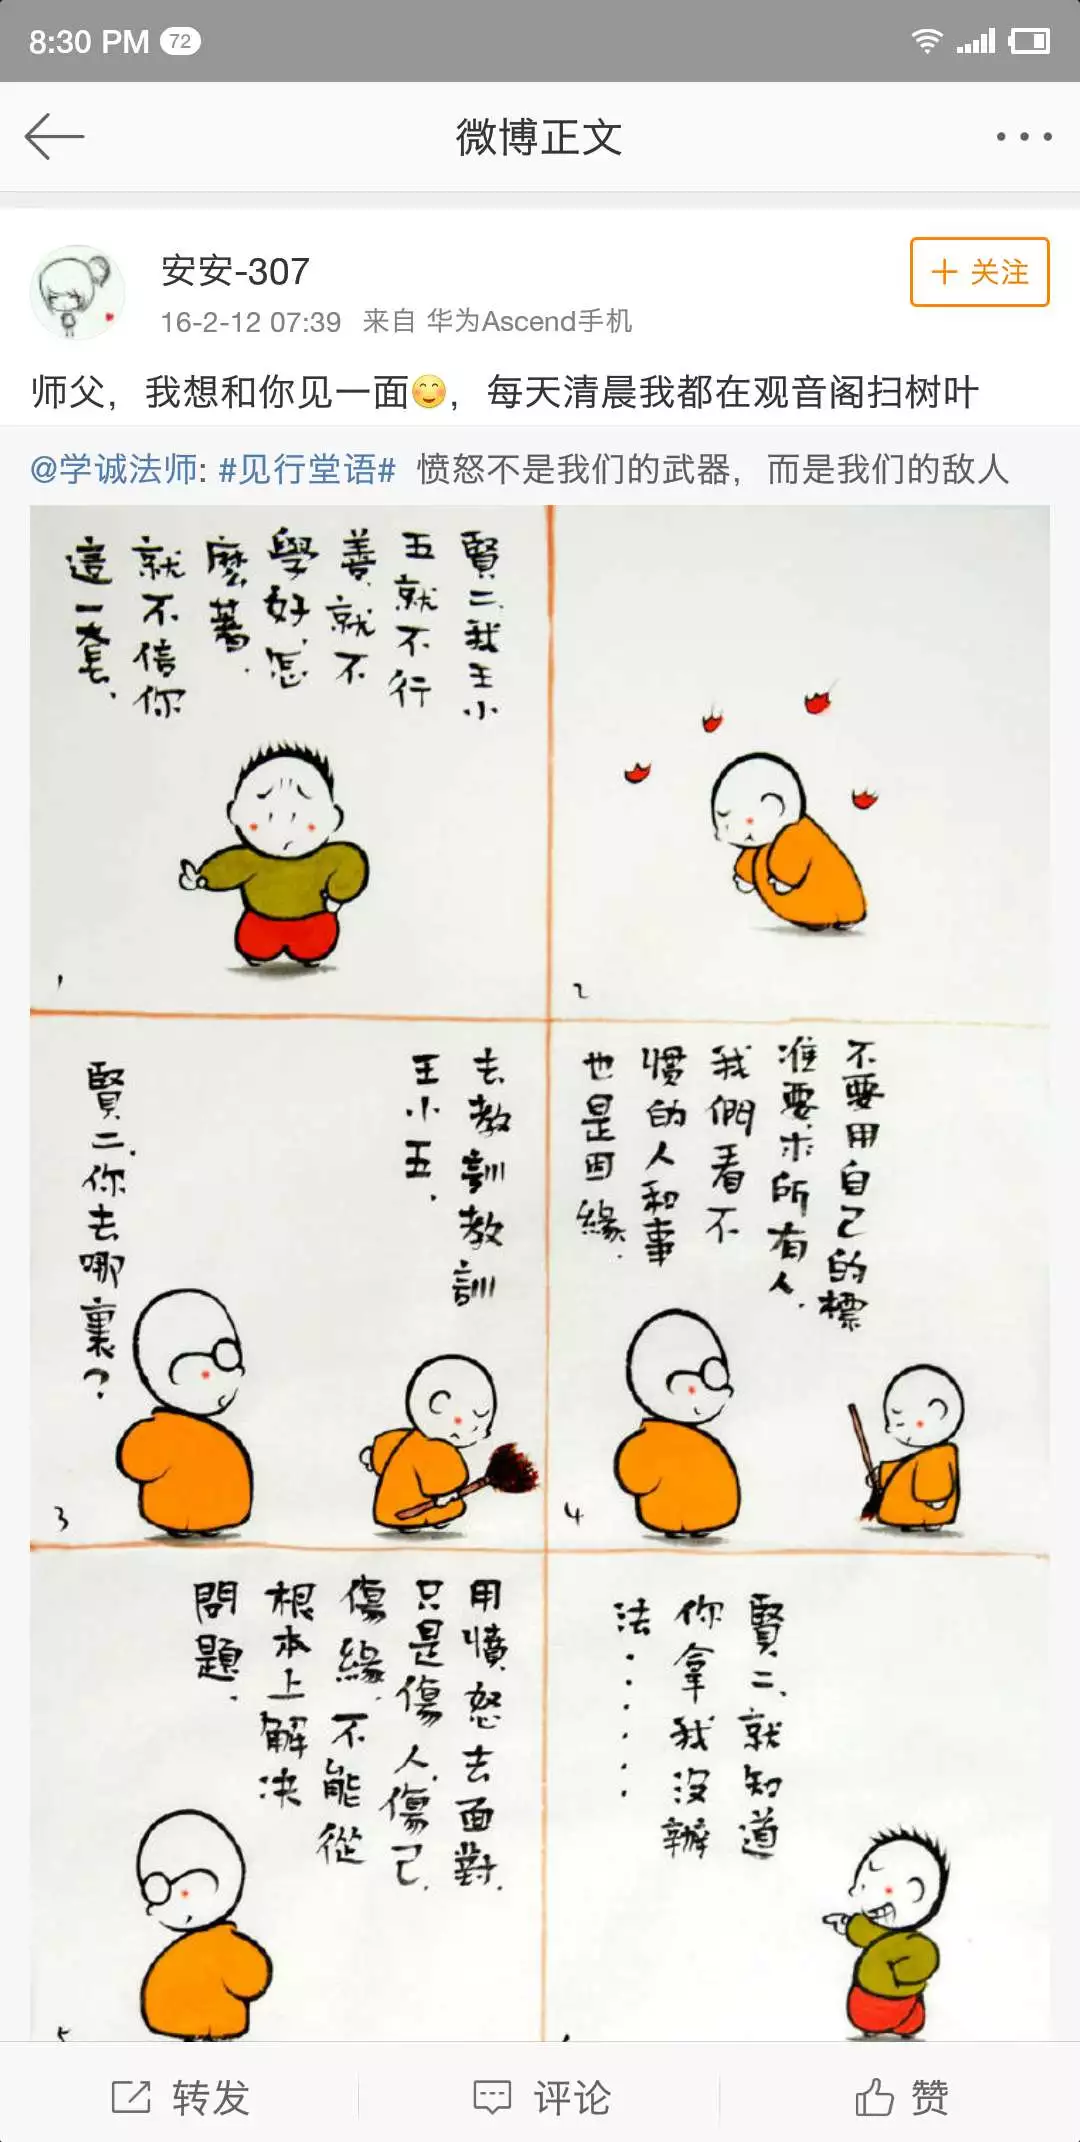 8:30 PM 72
微博正文
安安-307
+ 关注
16-2-12 07:39 来自 华为Ascend手机
师父，我想和你见一面😊，每天清晨我都在观音阁扫树叶
@学诚法师: #见行堂语# 愤怒不是我们的武器，而是我们的敌人
賢二、我王小
五就不行
善、就不
學好、怎
麽著、
就不信你
這一套、
1
2
去教訓教訓
王小五、
賢二、你去哪裏？
3
不要用自己的標
准要求所有人、
我們看不
慣的人和事
也是因緣、
4
用憤怒去面對、
只是傷人、傷己、
傷緣、不能從
根本上解決
問題、
5
賢二、就知道
你拿我沒辦
法······
转发
评论
赞